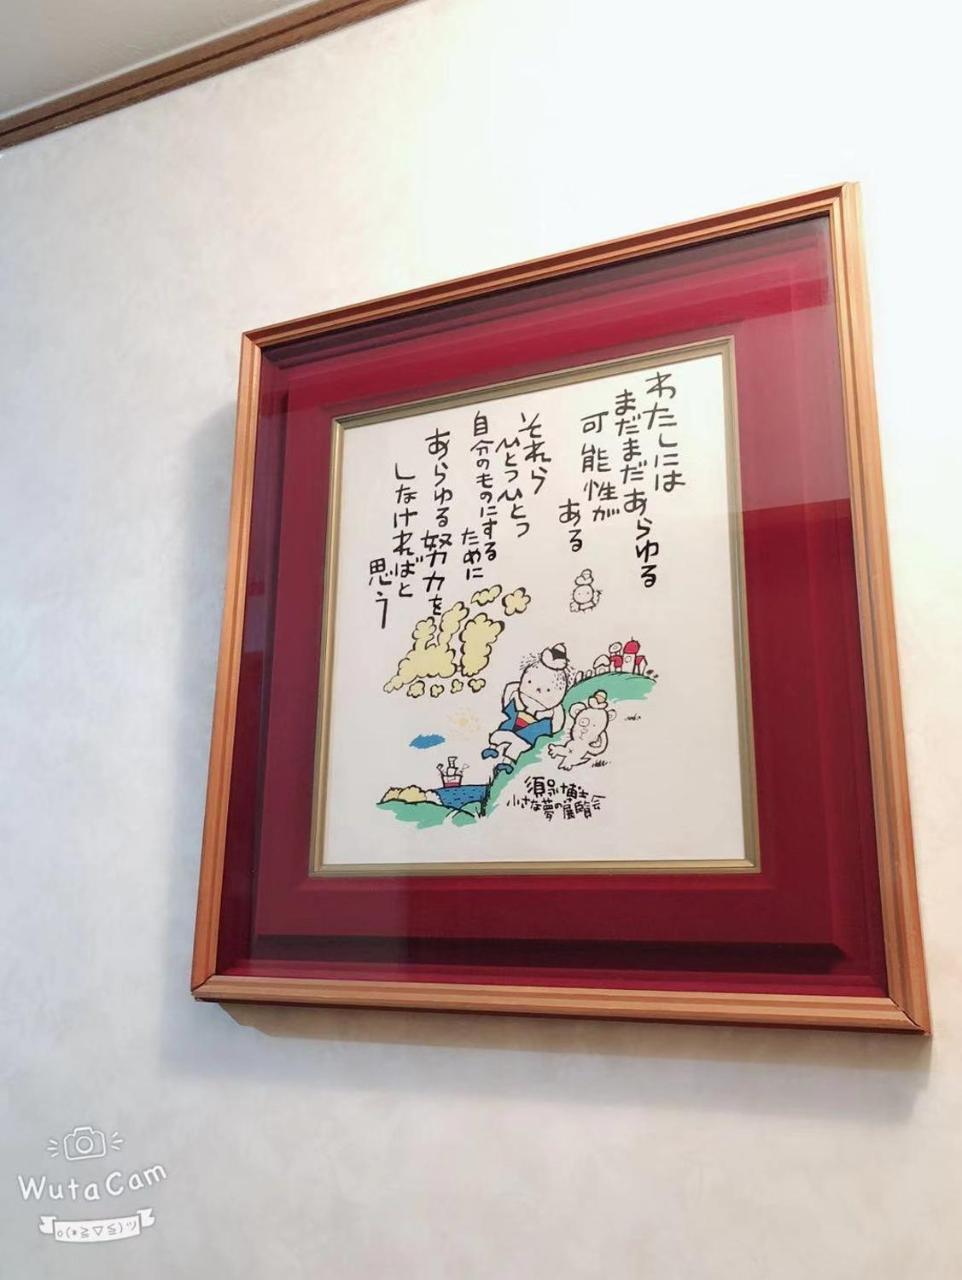 わたしには
まだまだあらゆる
可能性が
ある
それら
ひとつひとつ
自分のものにする
ために
あらゆる努力を
しなければと
思う
須永博士
小さな夢の展覧会
WutaCam
o(*≧▽≦)ツ